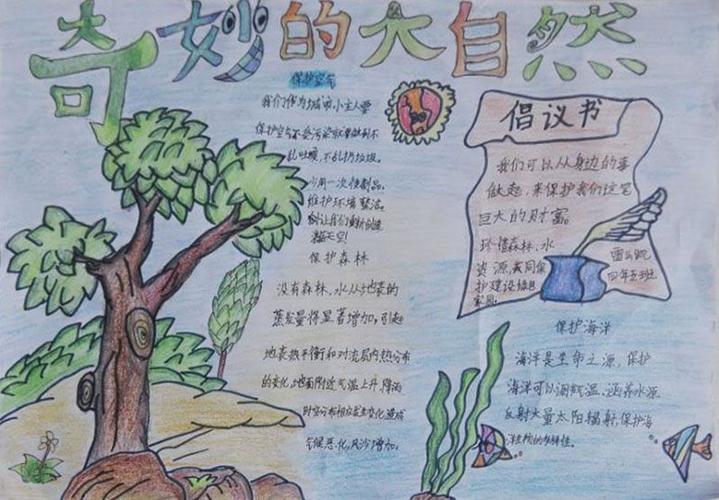 奇妙的大自然
保护空气
我们作为城市小主人要
保护空气不受污染就要做到不
乱吐痰,不乱扔垃圾。
少用一次性制品。
维护环境整洁。
让我们重新创造
蓝天空!
保护森林
没有森林,水从地表的
蒸发量将显著增加,引起
地表热平衡和对流层内热分布
的变化,地面附近气温上升,降雨
时空分布相应发生变化,造成
气候恶化,风沙增加。
倡议书
我们可以从身边的事
做起,来保护我们这笔
巨大的财富。
珍惜森林、水
资源,共同保
护建设绿色
家园。
四年五班
保护海洋
海洋是生命之源,保护
海洋可以调节气温、涵养水源
反射大量太阳辐射,保护海
洋生物的多样性。